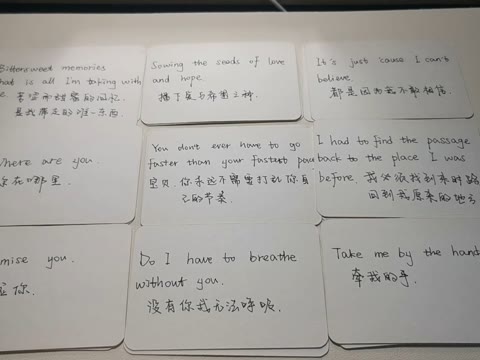 Bittersweet memories
that is all I'm taking with
苦涩而甜蜜的回忆.
是我带走的唯一东西.
Sowing the seeds of love
and hope.
播下爱与希望之种.
It's just 'cause I can't
believe.
都是因为我不敢相信.
Where are you.
你在哪里.
You don't ever have to go
faster than your fastest pace
宝贝.你永远不需要打乱你自
己的节奏.
I had to find the passage
back to the place I was
before. 我必须找到来时的路
回到我原来的地方
mise you.
你.
Do I have to breathe
without you.
没有你我无法呼吸.
Take me by the hand
牵我的手.